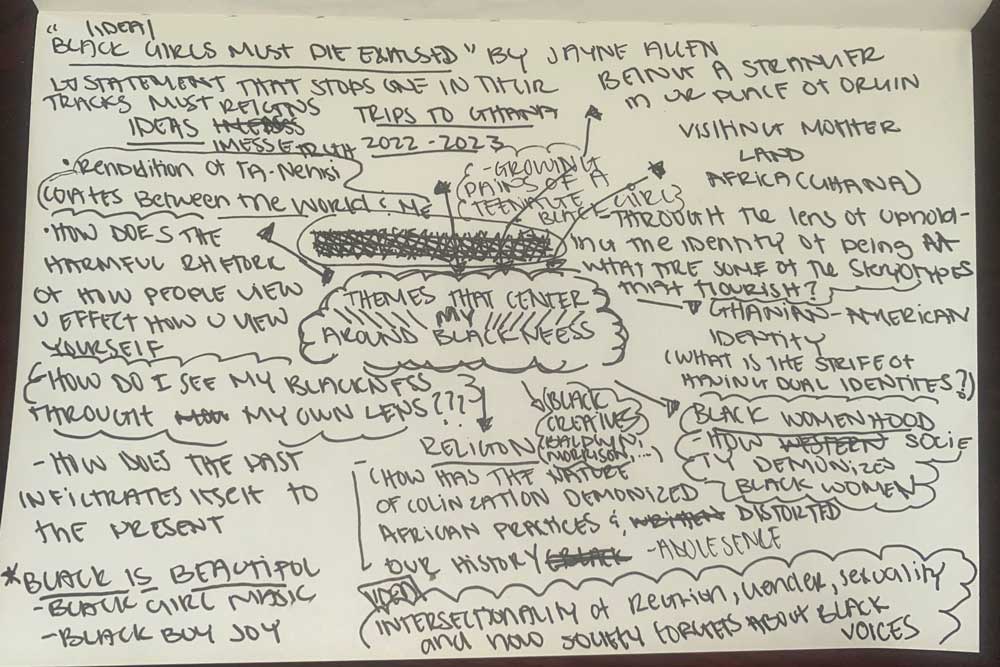 " (IDEA)
BLACK GIRLS MUST DIE EXAUSED" BY JAYNE ALLEN
STATEMENT THAT STOPS ONE IN THIER
TRACKS MUST
IDEAS
TRIPS TO GHANA
2022-2023
BEING A STRANGER
IN UR PLACE OF ORIGIN
VISITING MOTHER
LAND
AFRICA (GHANA)
• Rendidition of TA-Nehisi
COATES Between the World & Me
-GROWING
PAINS OF A
TEENAGE
BLACK GIRL
-THROUGH The lens of uphold-
ing the identity of being AA
WHAT ARE SOME OF THE
THAT FLOURISH?
• HOW DOES THE
HARMFUL
OF HOW PEOPLE VIEW
U EFFECT HOW U VIEW
YOURSELF
THEMES THAT CENTER
MY
AROUND BLACKNEESS
GHANIAN-AMERICAN
IDENTITY
(WHAT IS THE STRIFE OF
HAVING DUAL IDENTITES?)
HOW DO I SEE MY BLACKNESS
THROUGH MY OWN LENS???
-HOW DOES THE PAST
INFILTRATES ITSELF TO
the PRESENT
*BLACK IS BEAUTIFUL
-BLACK GIRL MAGIC
-BLACK BOY JOY
(BLACK
CREATIVES
BALDWIN,
MORRISON,...)
RELIGION
(HOW HAS THE NATURE
OF COLINIZATION DEMONIZED
AFRICAN PRACTICES & DISTORTED
OUR HISTORY
-ADOLESENCE
BLACK WOMENHOOD
-HOW WESTERN SOCIE
TY DEMONIZED
BLACK WOMEN
INTERSECTIONALITY of Religion, Gender, sexuality
and how SOCIETY FORGETS ABOUT BLACK
VOICES